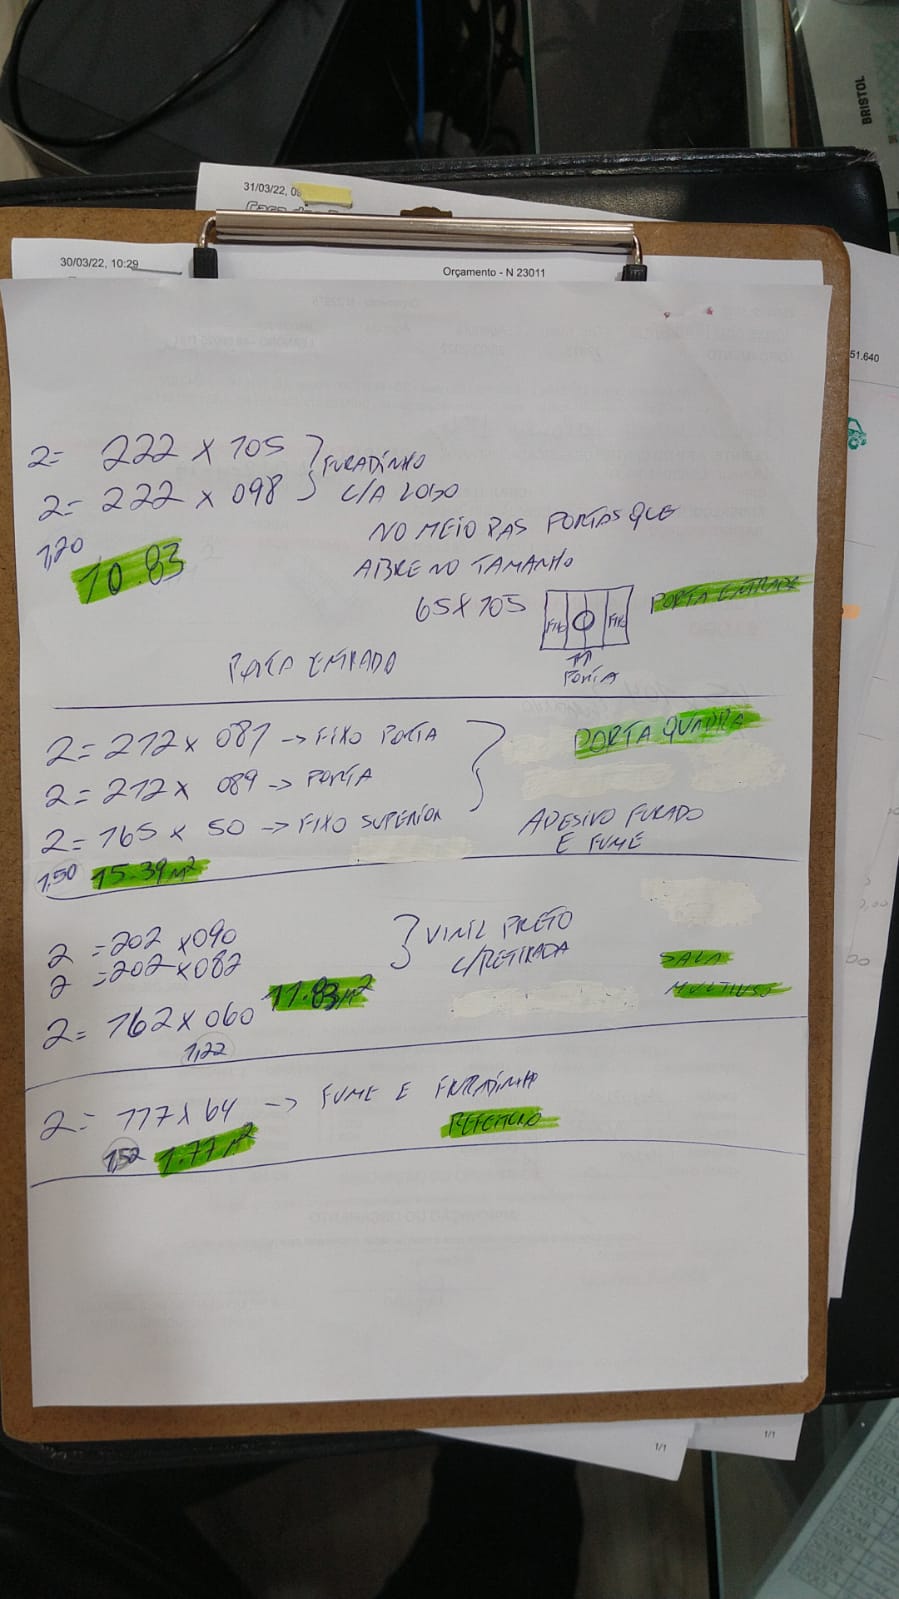 BRISTOL
31/03/22, 09
30/03/22, 10:29
Orçamento - N 23011
51.640
2= 222 x 105 } FURADINHO
2= 222 x 098 C/A LOGO
1,20
10.83
NO MEIO DAS PORTAS QUE
ABRE NO TAMANHO
65X105
FIXO FIXO
PORTA
PORTA ENTRADA
PORTA ENTRADO
2= 212 x 081 -> FIXO PORTA
2= 212 x 089 -> PORTA
2= 165 x 50 -> FIXO SUPERIOR
PORTA QUADRA
ADESIVO FURADO
E FUME
1,50 15.39 m²
2 =202 x090
2 =202 x082
} VINIL PRETO
C/RETIRADA
SALA
MULTIUSO
11.83 m²
2= 162 x 060
1,22
2= 117 x 64 -> FUME E FURADINHO
REFEITORIO
1,52 1.77 m²
1/1
1/1